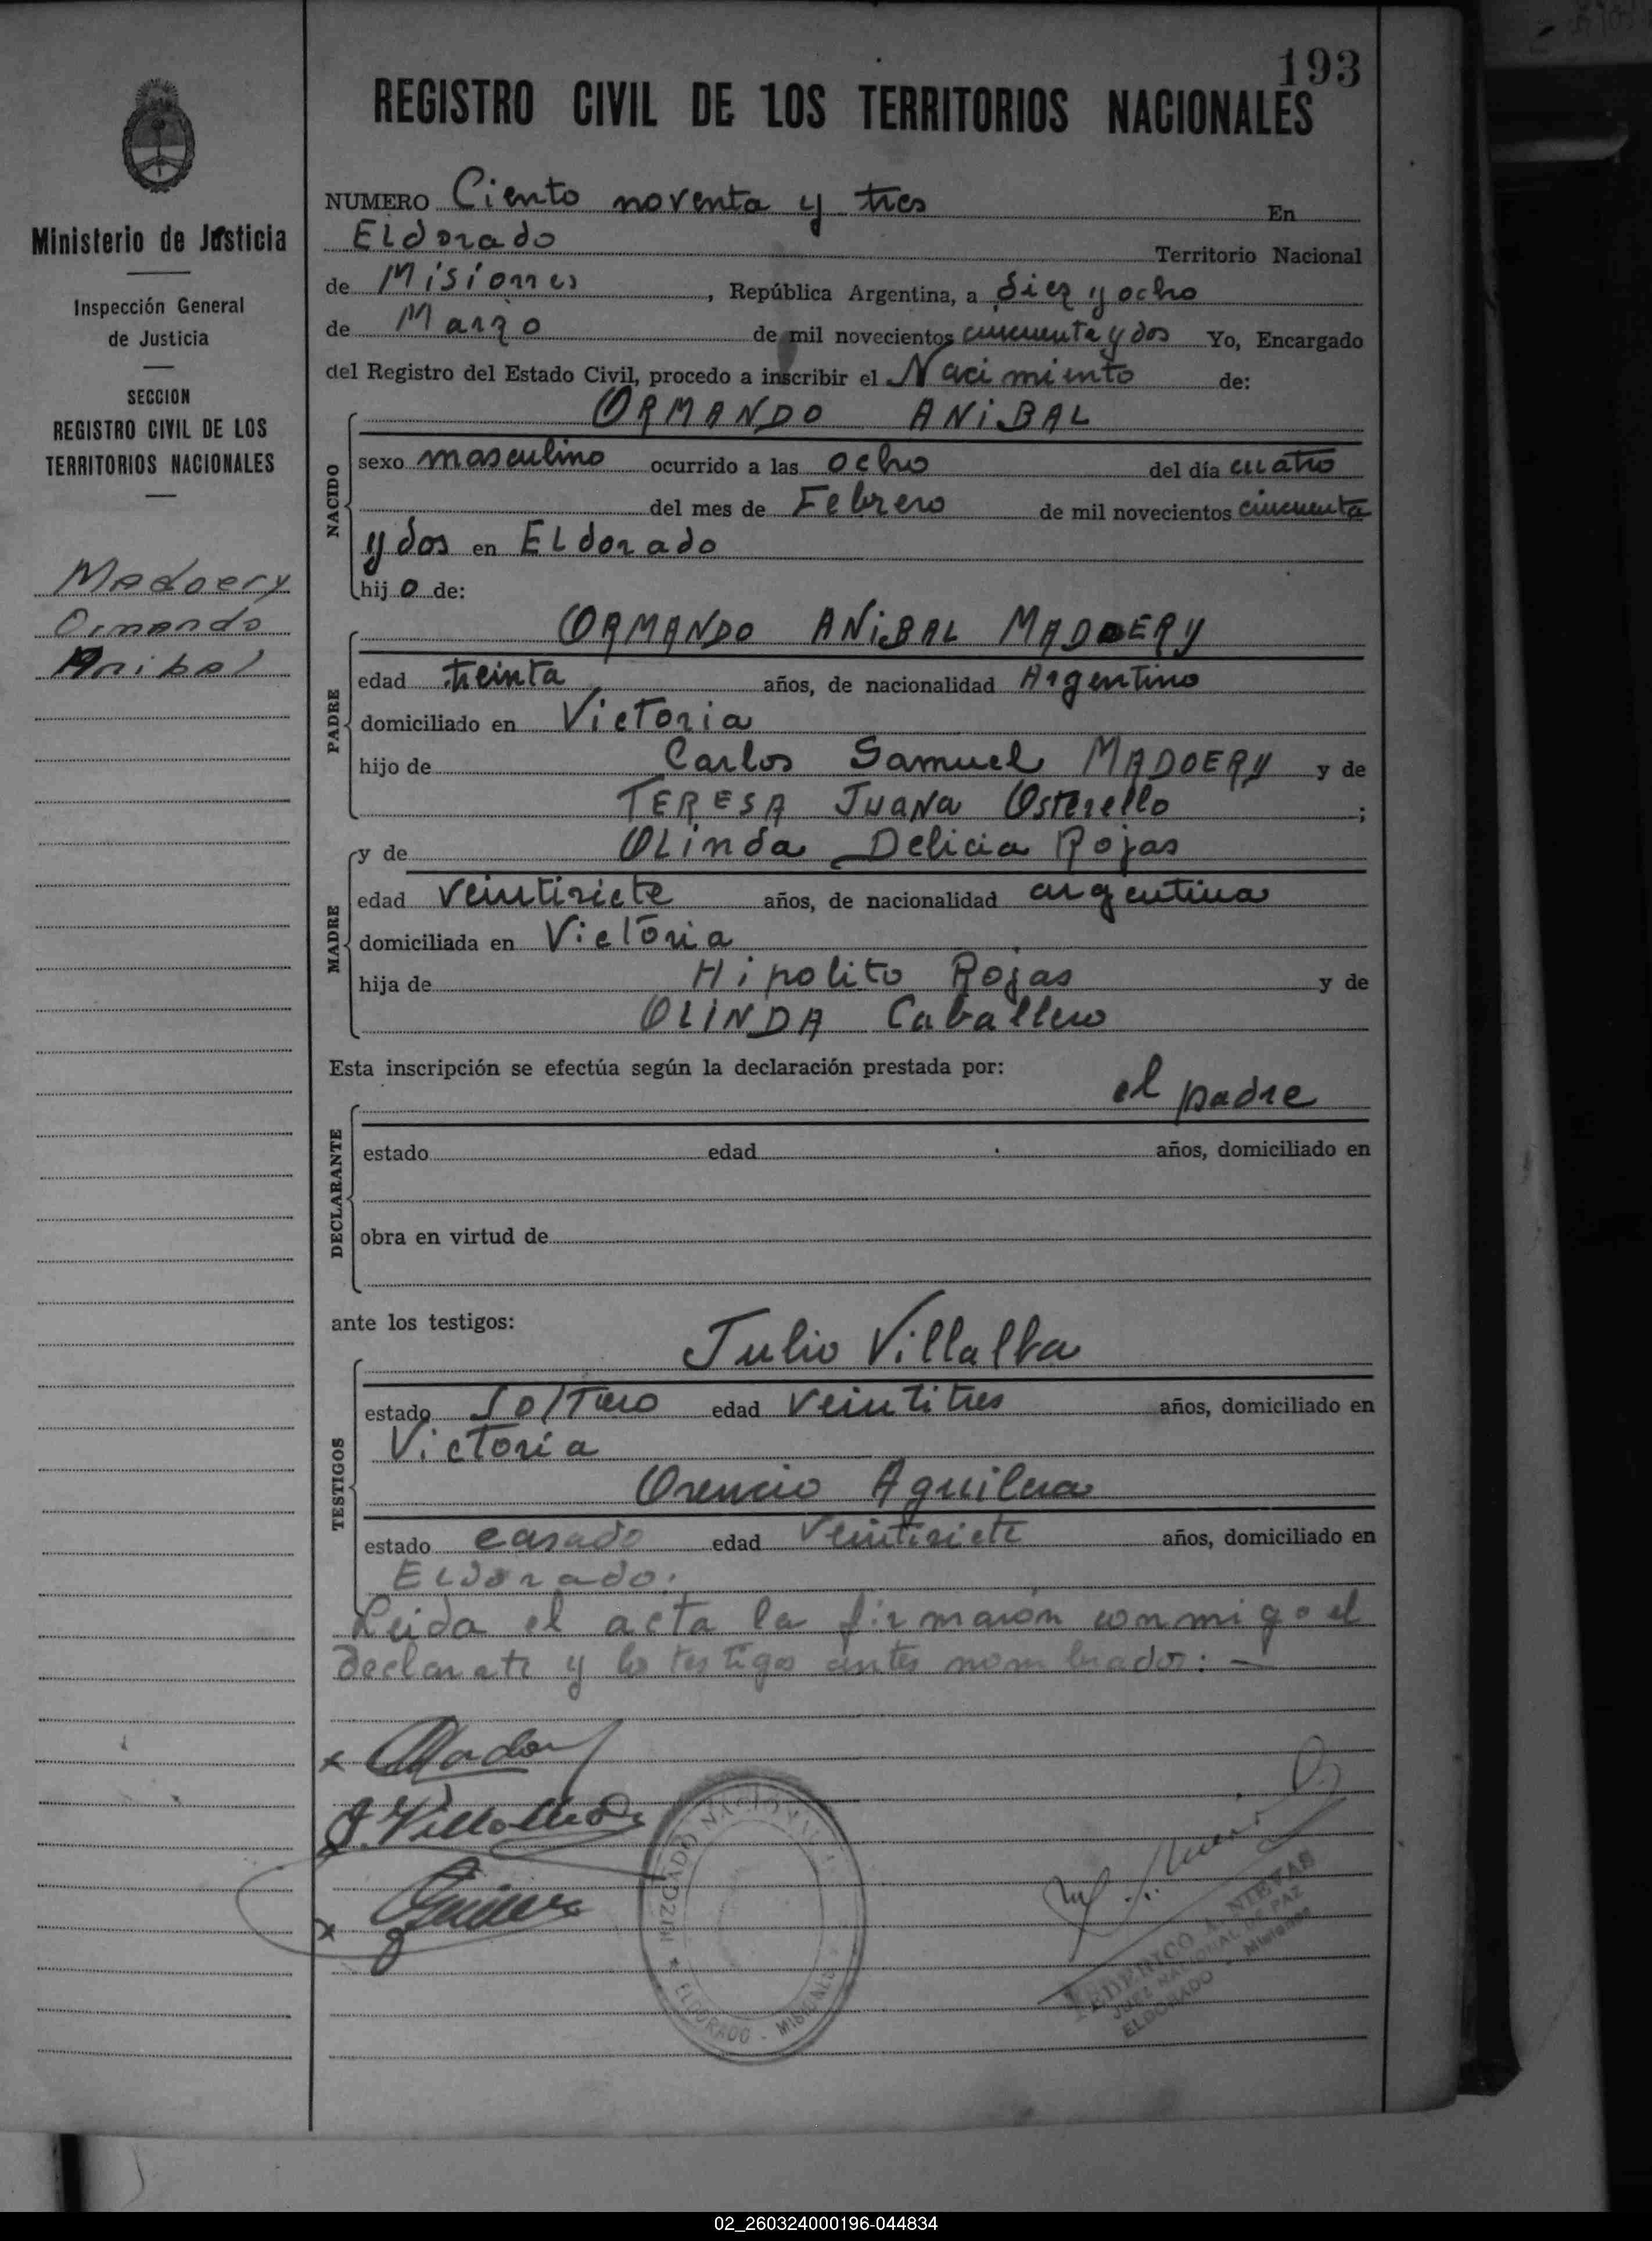 193
REGISTRO CIVIL DE LOS TERRITORIOS NACIONALES
Ministerio de Justicia
Inspección General
de Justicia
SECCION
REGISTRO CIVIL DE LOS
TERRITORIOS NACIONALES
Madoery
Ormando
Anibal
NUMERO Ciento noventa y tres En
Eldorado Territorio Nacional
de Misiones, República Argentina, a diez y ocho
de Marzo de mil novecientos cincuenta y dos Yo, Encargado
del Registro del Estado Civil, procedo a inscribir el Nacimiento de:
ORMANDO ANIBAL
NACIDO
sexo masculino ocurrido a las ocho del día cuatro
del mes de Febrero de mil novecientos cincuenta
y dos en ELdorado
hijo de:
ORMANDO ANIBAL MADOERY
PADRE
edad treinta años, de nacionalidad Argentino
domiciliado en Victoria
hijo de Carlos Samuel MADOERY y de
TERESA Juana Osterello ;
MADRE
y de OLinda Delicia Rojas
edad veintisiete años, de nacionalidad argentina
domiciliada en Victoria
hija de Hipolito Rojas y de
OLINDA Caballero
Esta inscripción se efectúa según la declaración prestada por:
el padre
DECLARANTE
estado edad años, domiciliado en
obra en virtud de
ante los testigos:
Julio Villalba
TESTIGOS
estado Soltero edad veintitres años, domiciliado en
Victoria
Orencio Aguilera
estado casado edad veintisiete años, domiciliado en
ELdorado.
Leida el acta la firmarón conmigo el
declarate y los testigos antes nombrados: —
J. Villalba
JUZGADO NACIONAL DE PAZ
ELDORADO - MISIONES
FEDERICO A. NIEVAS
JUEZ NACIONAL DE PAZ
ELDORADO - Misiones
02_260324000196-044834